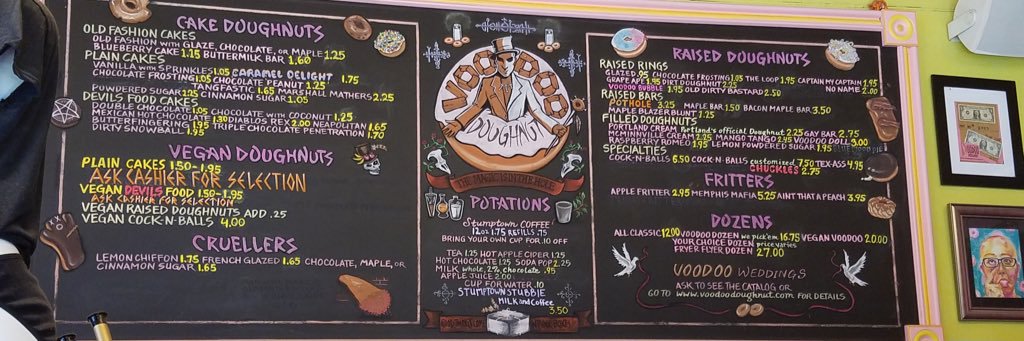 CAKE DOUGHNUTS
OLD FASHION CAKES
OLD FASHION WITH GLAZE, CHOCOLATE, OR MAPLE 1.25
BLUEBERRY CAKE 1.25 BUTTERMILK BAR 1.60
PLAIN CAKES
VANILLA WITH SPRINKLES 1.05 CARAMEL DELIGHT 1.75
CHOCOLATE FROSTING 1.05 CHOCOLATE PEANUT 1.25
TANGFASTIC 1.65 MARSHALL MATHERS 2.25
POWDERED SUGAR 1.25 CINNAMON SUGAR 1.05
DEVILS FOOD CAKES
DOUBLE CHOCOLATE 1.05 CHOCOLATE WITH COCONUT 1.25
MEXICAN HOT CHOCOLATE 1.30 DIABLOS REX 2.00 NEAPOLITAN 1.65
BUTTERFINGERING 1.95 TRIPLE CHOCOLATE PENETRATION 1.75
DIRTY SNOWBALL 1.95
VEGAN DOUGHNUTS
PLAIN CAKES 1.50-1.95
ASK CASHIER FOR SELECTION
VEGAN DEVILS FOOD 1.50-1.95
ASK CASHIER FOR SELECTION
VEGAN RAISED DOUGHNUTS ADD .25
VEGAN COCK-N-BALLS 4.00
CRUELLERS
LEMON CHIFFON 1.75 FRENCH GLAZED 1.65 CHOCOLATE, MAPLE, OR
CINNAMON SUGAR 1.65
VOODOO
DOUGHNUT
THE MAGIC IS IN THE HOLE
POTATIONS
Stumptown COFFEE
12oz 1.75 REFILLS .75
BRING YOUR OWN CUP FOR .10 OFF
TEA 1.25 HOT APPLE CIDER 1.25
HOT CHOCOLATE 1.25 SODA POP 2.25
MILK whole, 2% chocolate .95
APPLE JUICE 2.00
CUP FOR WATER .10
STUMPTOWN STUBBIE
MILK and Coffee
3.50
RAISED DOUGHNUTS
RAISED RINGS
GLAZED .95 CHOCOLATE FROSTING 1.05 THE LOOP 1.95 CAPTAIN MY CAPTAIN 1.95
GRAPE APE 1.95 DIRT DOUGHNUT 1.25 NO NAME 2.00
VOODOO BUBBLE 1.95 OLD DIRTY BASTARD 2.50
RAISED BARS
POTHOLE 3.25 MAPLE BAR 1.50 BACON MAPLE BAR 3.50
MAPLE BLAZER BLUNT 1.25
FILLED DOUGHNUTS
PORTLAND CREAM Portland's official Doughnut 2.25 GAY BAR 2.75
MCMINNVILLE CREAM 2.25 MANGO TANGO 2.95 VOODOO DOLL 3.00
RASPBERRY ROMEO 1.95 LEMON POWDERED SUGAR 1.95
SPECIALTIES
COCK-N-BALLS 6.50 COCK-N-BALLS customized 7.50 TEX-ASS 4.95
CHUCKLES 2.75
FRITTERS
APPLE FRITTER 2.95 MEMPHIS MAFIA 5.25 AIN'T THAT A PEACH 3.95
DOZENS
ALL CLASSIC 12.00 VOODOO DOZEN we pick'em 16.75 VEGAN VOODOO 20.00
YOUR CHOICE DOZEN price varies
FRYER FLYER DOZEN 27.00
VOODOO WEDDINGS
ASK TO SEE THE CATALOG OR
GO TO www.voodoodoughnut.com FOR DETAILS